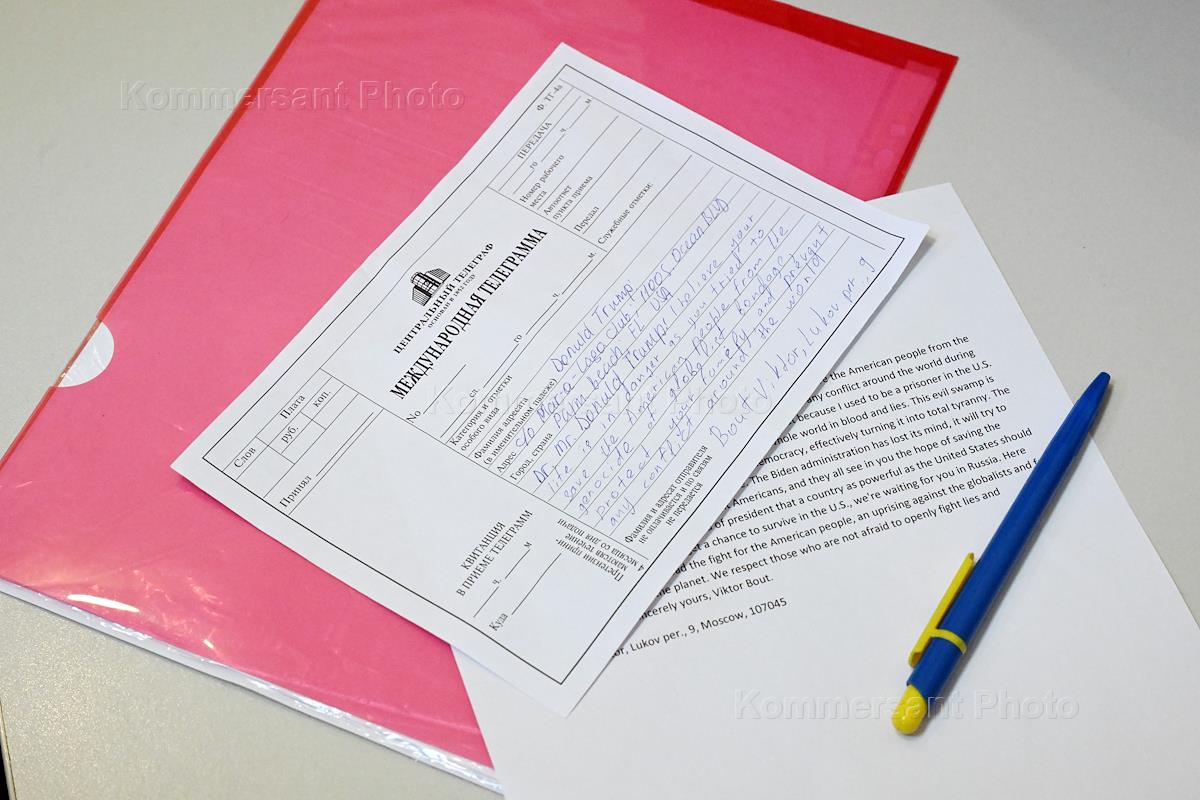 Kommersant Photo
Ф. ТГ-4а
ЦЕНТРАЛЬНЫЙ ТЕЛЕГРАФ
ОСНОВАН В 1852 ГОДУ
МЕЖДУНАРОДНАЯ ТЕЛЕГРАММА
ПЕРЕДАЧА
го ч м
Номер рабочего
места
Автоответ
пункта приема
Передал
Служебные отметки:
Слов
Плата
руб. коп.
Принял
No сл. го ч. м.
Категория и отметки
особого вида
Фамилия адресата
(в именительном падеже)
Адрес
Город, страна
Donald Trump
c/o Mar-a-Lago Club, 1100 S. Ocean BLVD
Palm beach, FL, USA
Dr Mr. Donald Trump! I believe your
life is in danger as you tried to
save the American people from the
genocide of globalist bondage
protect your homeland and prevent
any conflict around the world
Bout Viktor, Lukov per., 9
Фамилия и адрес отправителя
не оплачивается и по связям
не передается
КВИТАНЦИЯ
В ПРИЕМЕ ТЕЛЕГРАММ
ч. м
Куда
Претензии прини-
маются в течение
4 месяца со дня подачи
Kommersant Photo
the American people from the
any conflict around the world during
because I used to be a prisoner in the U.S.
whole world in blood and lies. This evil swamp is
democracy, effectively turning it into total tyranny. The
The Biden administration has lost its mind, it will try to
Americans, and they all see in you the hope of saving the
of president that a country as powerful as the United States should
a chance to survive in the U.S., we're waiting for you in Russia. Here
the fight for the American people, an uprising against the globalists and
planet. We respect those who are not afraid to openly fight lies and
Sincerely yours, Viktor Bout.
Lukov per., 9, Moscow, 107045
Kommersant Photo